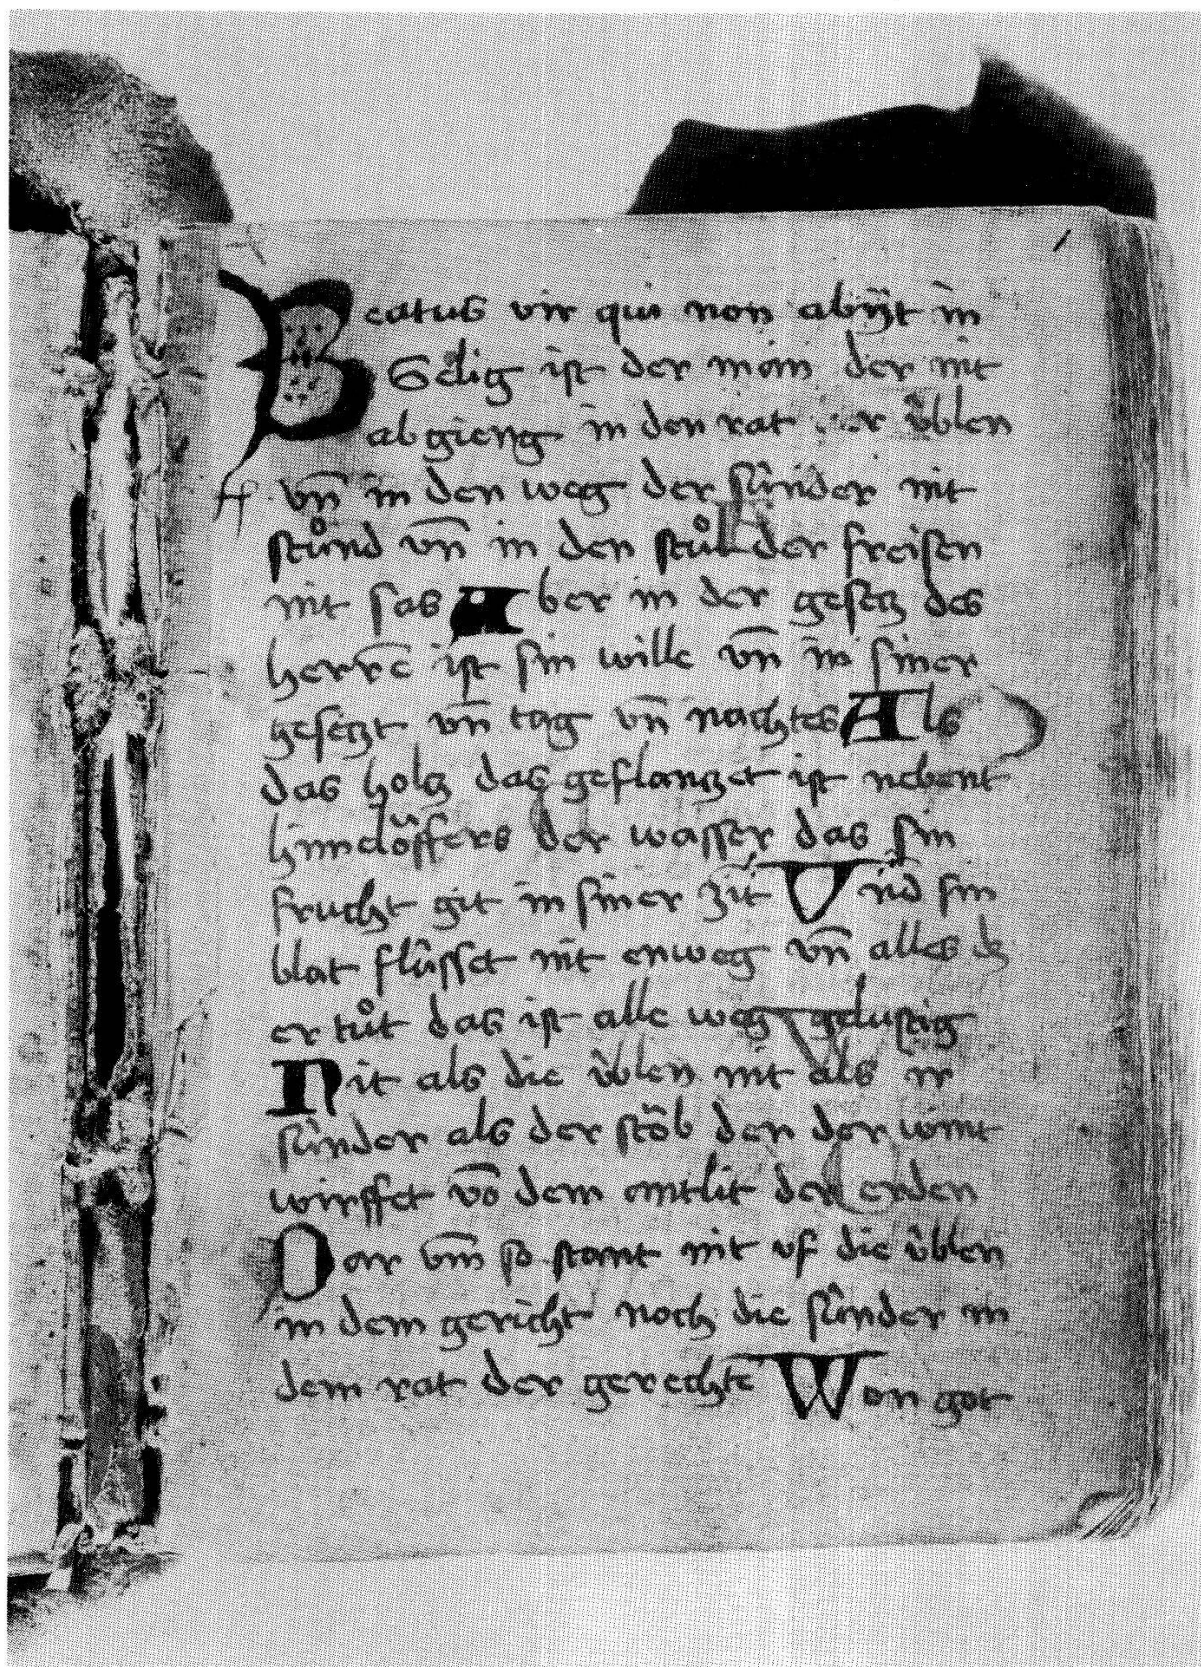 Beatus vir qui non abyt in
Sēlig ist der man der nit
ab gieng in den rat der ůblen
vn̄ in den weg der sůnder nit
stůnd vn̄ in den stůl der freisen
nit sas Aber in der gesetz des
herrē ist sin wille vn̄ in siner
gesetzt vn̄ tag vn̄ nachtes Als
das holtz das geflanzet ist nebent
der wasser das sin
frucht git in siner zit Vnd sin
blat flůsset nit enweg vn̄ alles dz
er tůt das ist alle weg gelustig
Nit als die ůblen nit als ir
sůnder als der stōb den der wint
wirffet vō dem antlit der erden
Dar vm̄ so stant nit uf die ůblen
in dem gericht noch die sůnder in
dem rat der gerechtē Wan got